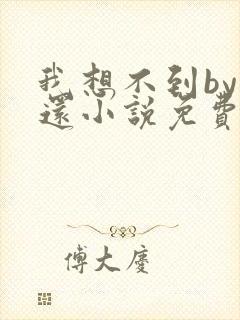 我想不到by
還小說免費
傅大慶